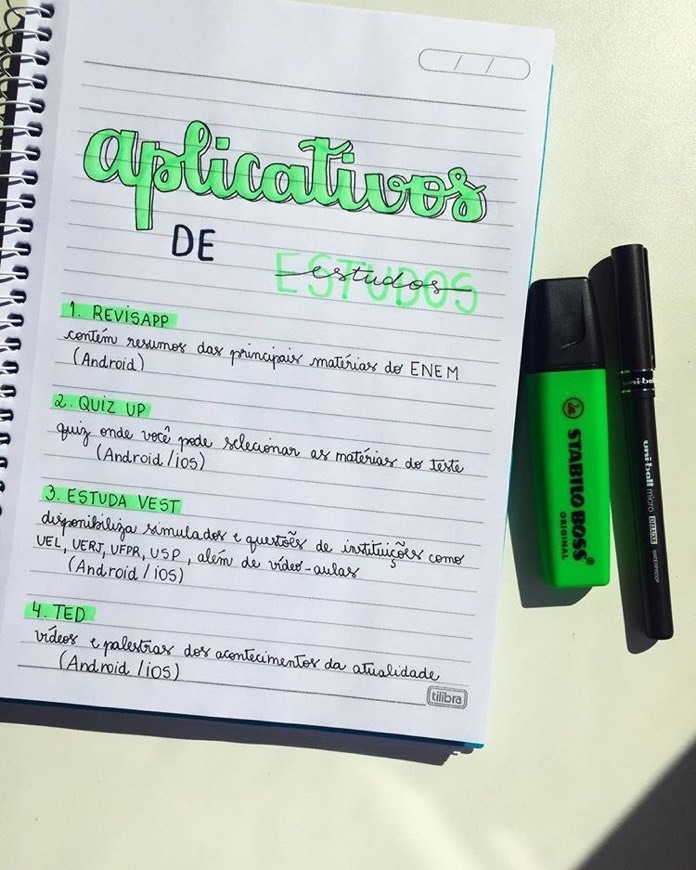 aplicativos
DE
ESTUDOS
estudos
1. REVISAPP
contém resumos das principais matérias do ENEM
(Android)
2. QUIZ UP
quiz onde você pode selecionar as matérias do teste
(Android/iOS)
3. ESTUDA VEST
disponibiliza simulados e questões de instituições como
UEL, UERJ, UFPR, USP, além de vídeo-aulas
(Android/iOS)
4. TED
vídeos e palestras dos acontecimentos da atualidade
(Android/iOS)
tilibra
STABILO BOSS
ORIGINAL
uni-ball
uniball micro DELUXE WATERPROOF